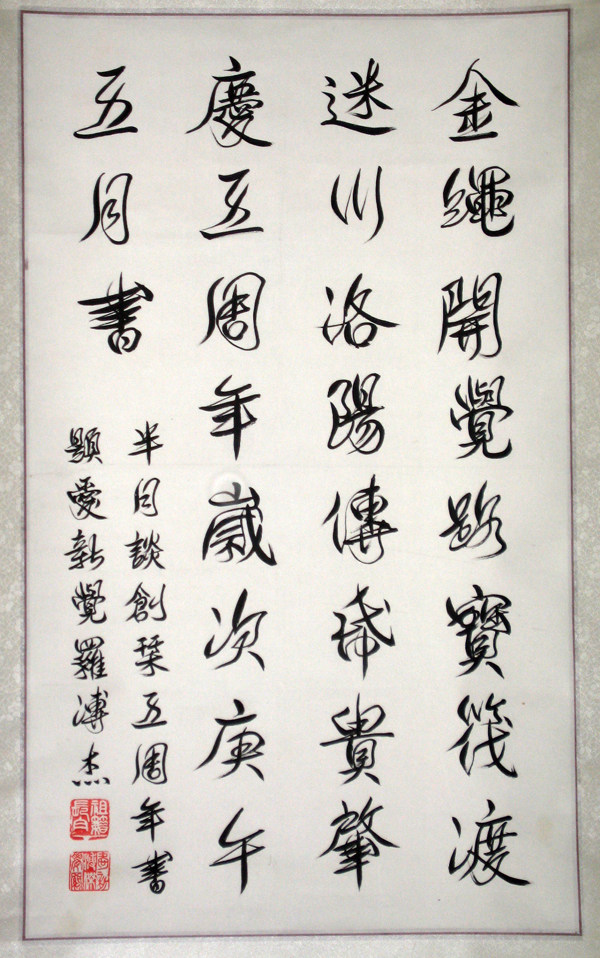 金繩開覺路寶筏渡
迷川洛陽傳帋貴肇
慶五周年歲次庚午
五月書
半月談創栞五周年書
題愛新覺羅溥杰
祖籍長白